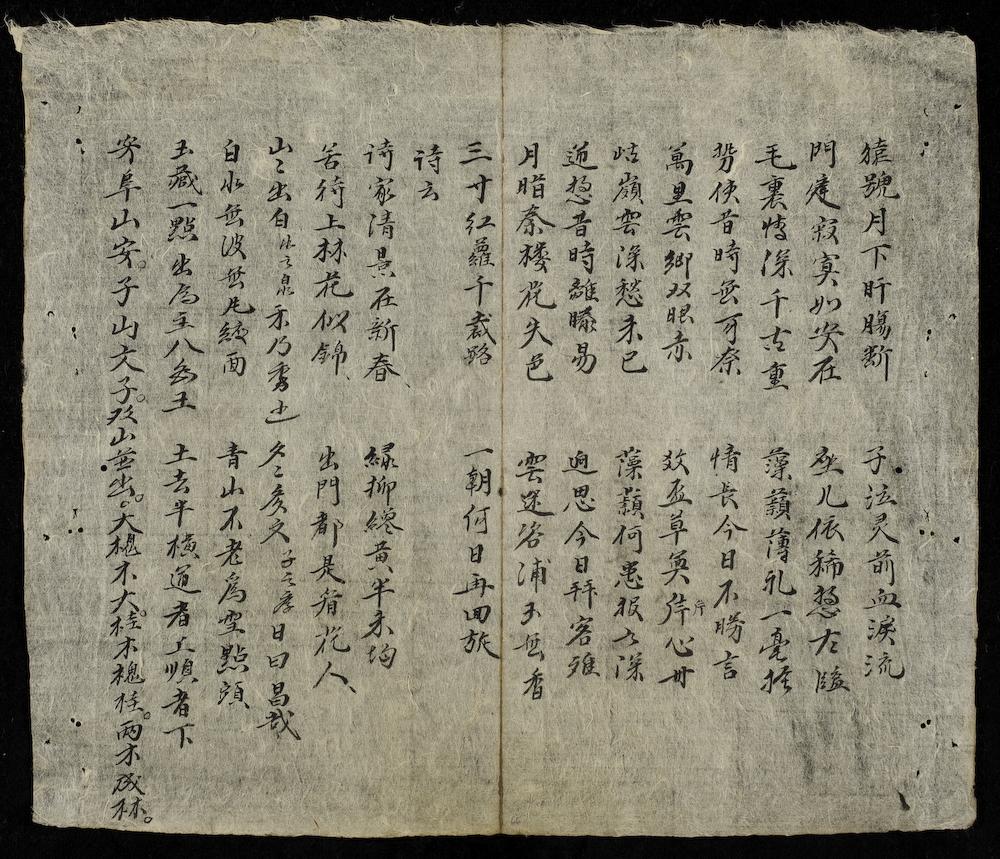 猿號月下肝腸斷　子泣灵前血淚流
門庭寂寞如安在　座儿依稀憶右臨
毛裏情深千古重　藻蘋薄礼一毫輕
勢使昔時無可奈　情長今日不勝言
萬里雲鄉双眼赤　效盃草奠片心丹
岵嶺雲深愁未已　藻蘋何患報以深
追想昔時離膝易　迴思今日拜容难
月暗秦楼花失色　雲迷谷浦玉無香
三寸紅蘿千歲路　一朝何日再回旅
诗云
诗家清景在新春、　緑柳纔黄半未均
若待上林花似錦、　出門都是看花人、
山山出白水之泉禾乃秀也　冬冬友文子之孝日曰昌哉
白水無波無尼綾面　青山不老為雪點頭
玉藏一點出為主入為王　土去半横逆者上順者下
安阜山安。子山大子。双山並出。大槐木大。桂木槐桂。两木成林。